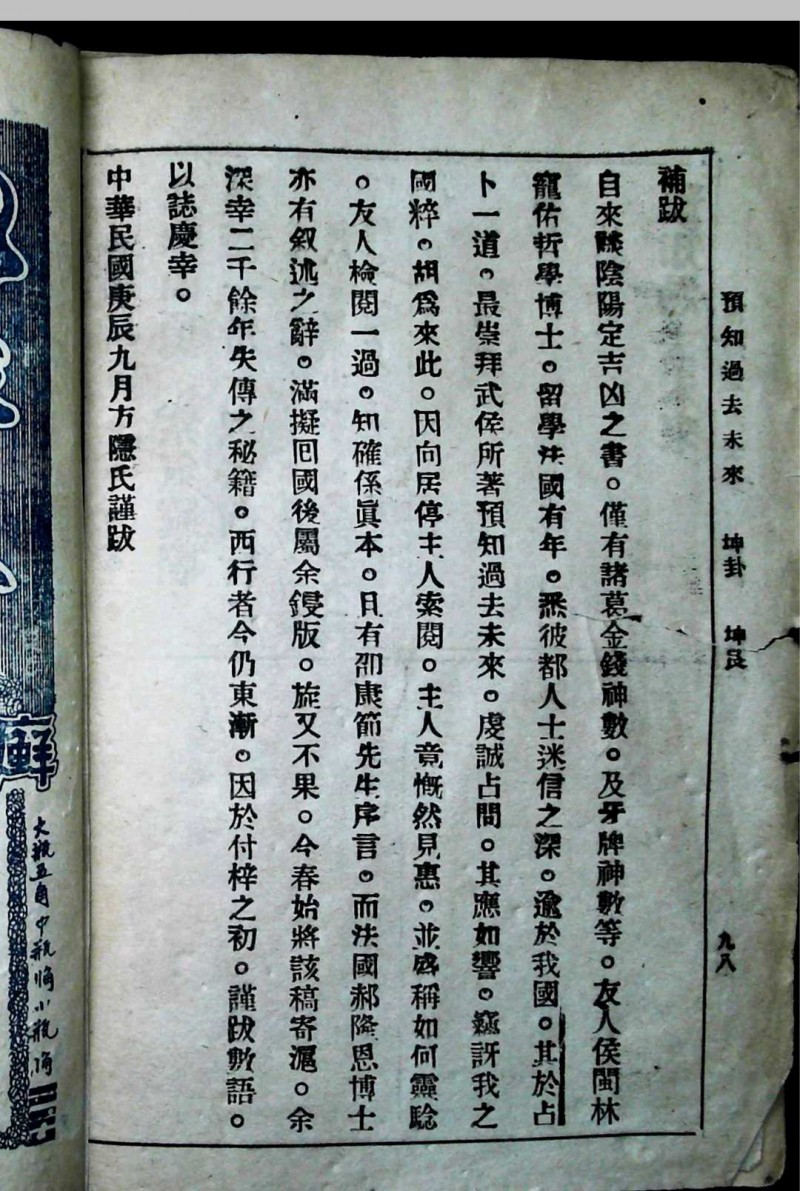 預知過去未來 坤卦 坤艮 九八
補跋
自來談陰陽定吉凶之書。僅有諸葛金錢神數。及牙牌神數等。友人侯閩林
寵佑哲學博士。留學法國有年。悉彼都人士迷信之深。逾於我國。其於占
卜一道。最崇拜武侯所著預知過去未來。虔誠占問。其應如響。竊訝我之
國粹。胡爲來此。因向居停主人索閱。主人竟慨然見惠。並盛稱如何靈騐
。友人檢閱一過。知確係眞本。且有邵康節先生序言。而法國郝隆恩博士
亦有叙述之辭。滿擬回國後屬余鋟版。旋又不果。今春始將該稿寄滬。余
深幸二千餘年失傳之秘籍。西行者今仍東漸。因於付梓之初。謹跋數語。
以誌慶幸。
中華民國庚辰九月方隱氏謹跋
大瓶五角中瓶小瓶